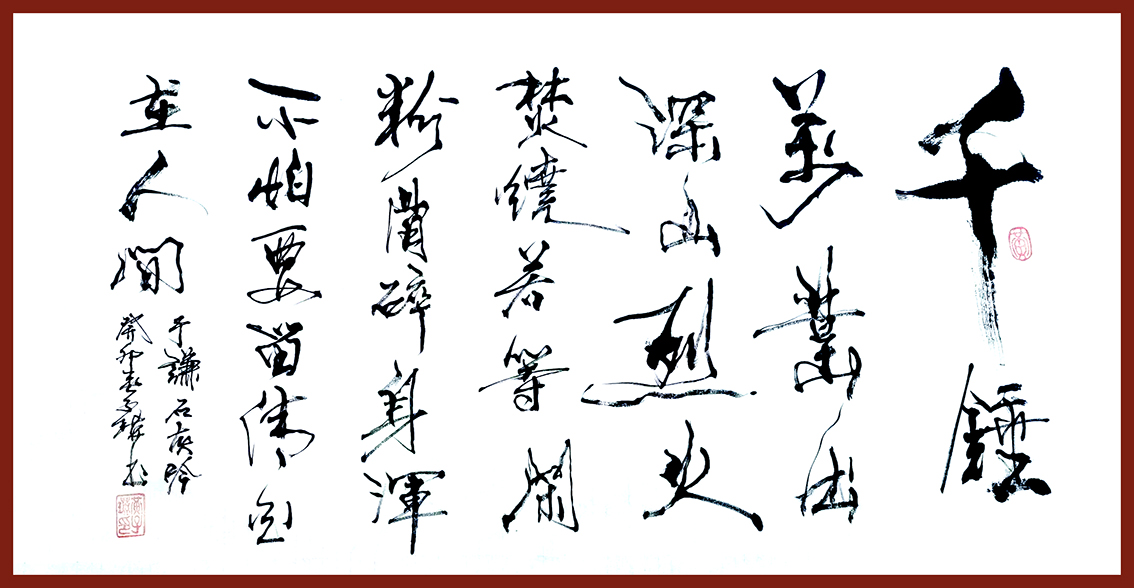 千錘
萬鑿出
深山烈火
焚燒若等閑
粉骨碎身渾
不怕要留清白
在人間
于謙石灰吟
癸卯春